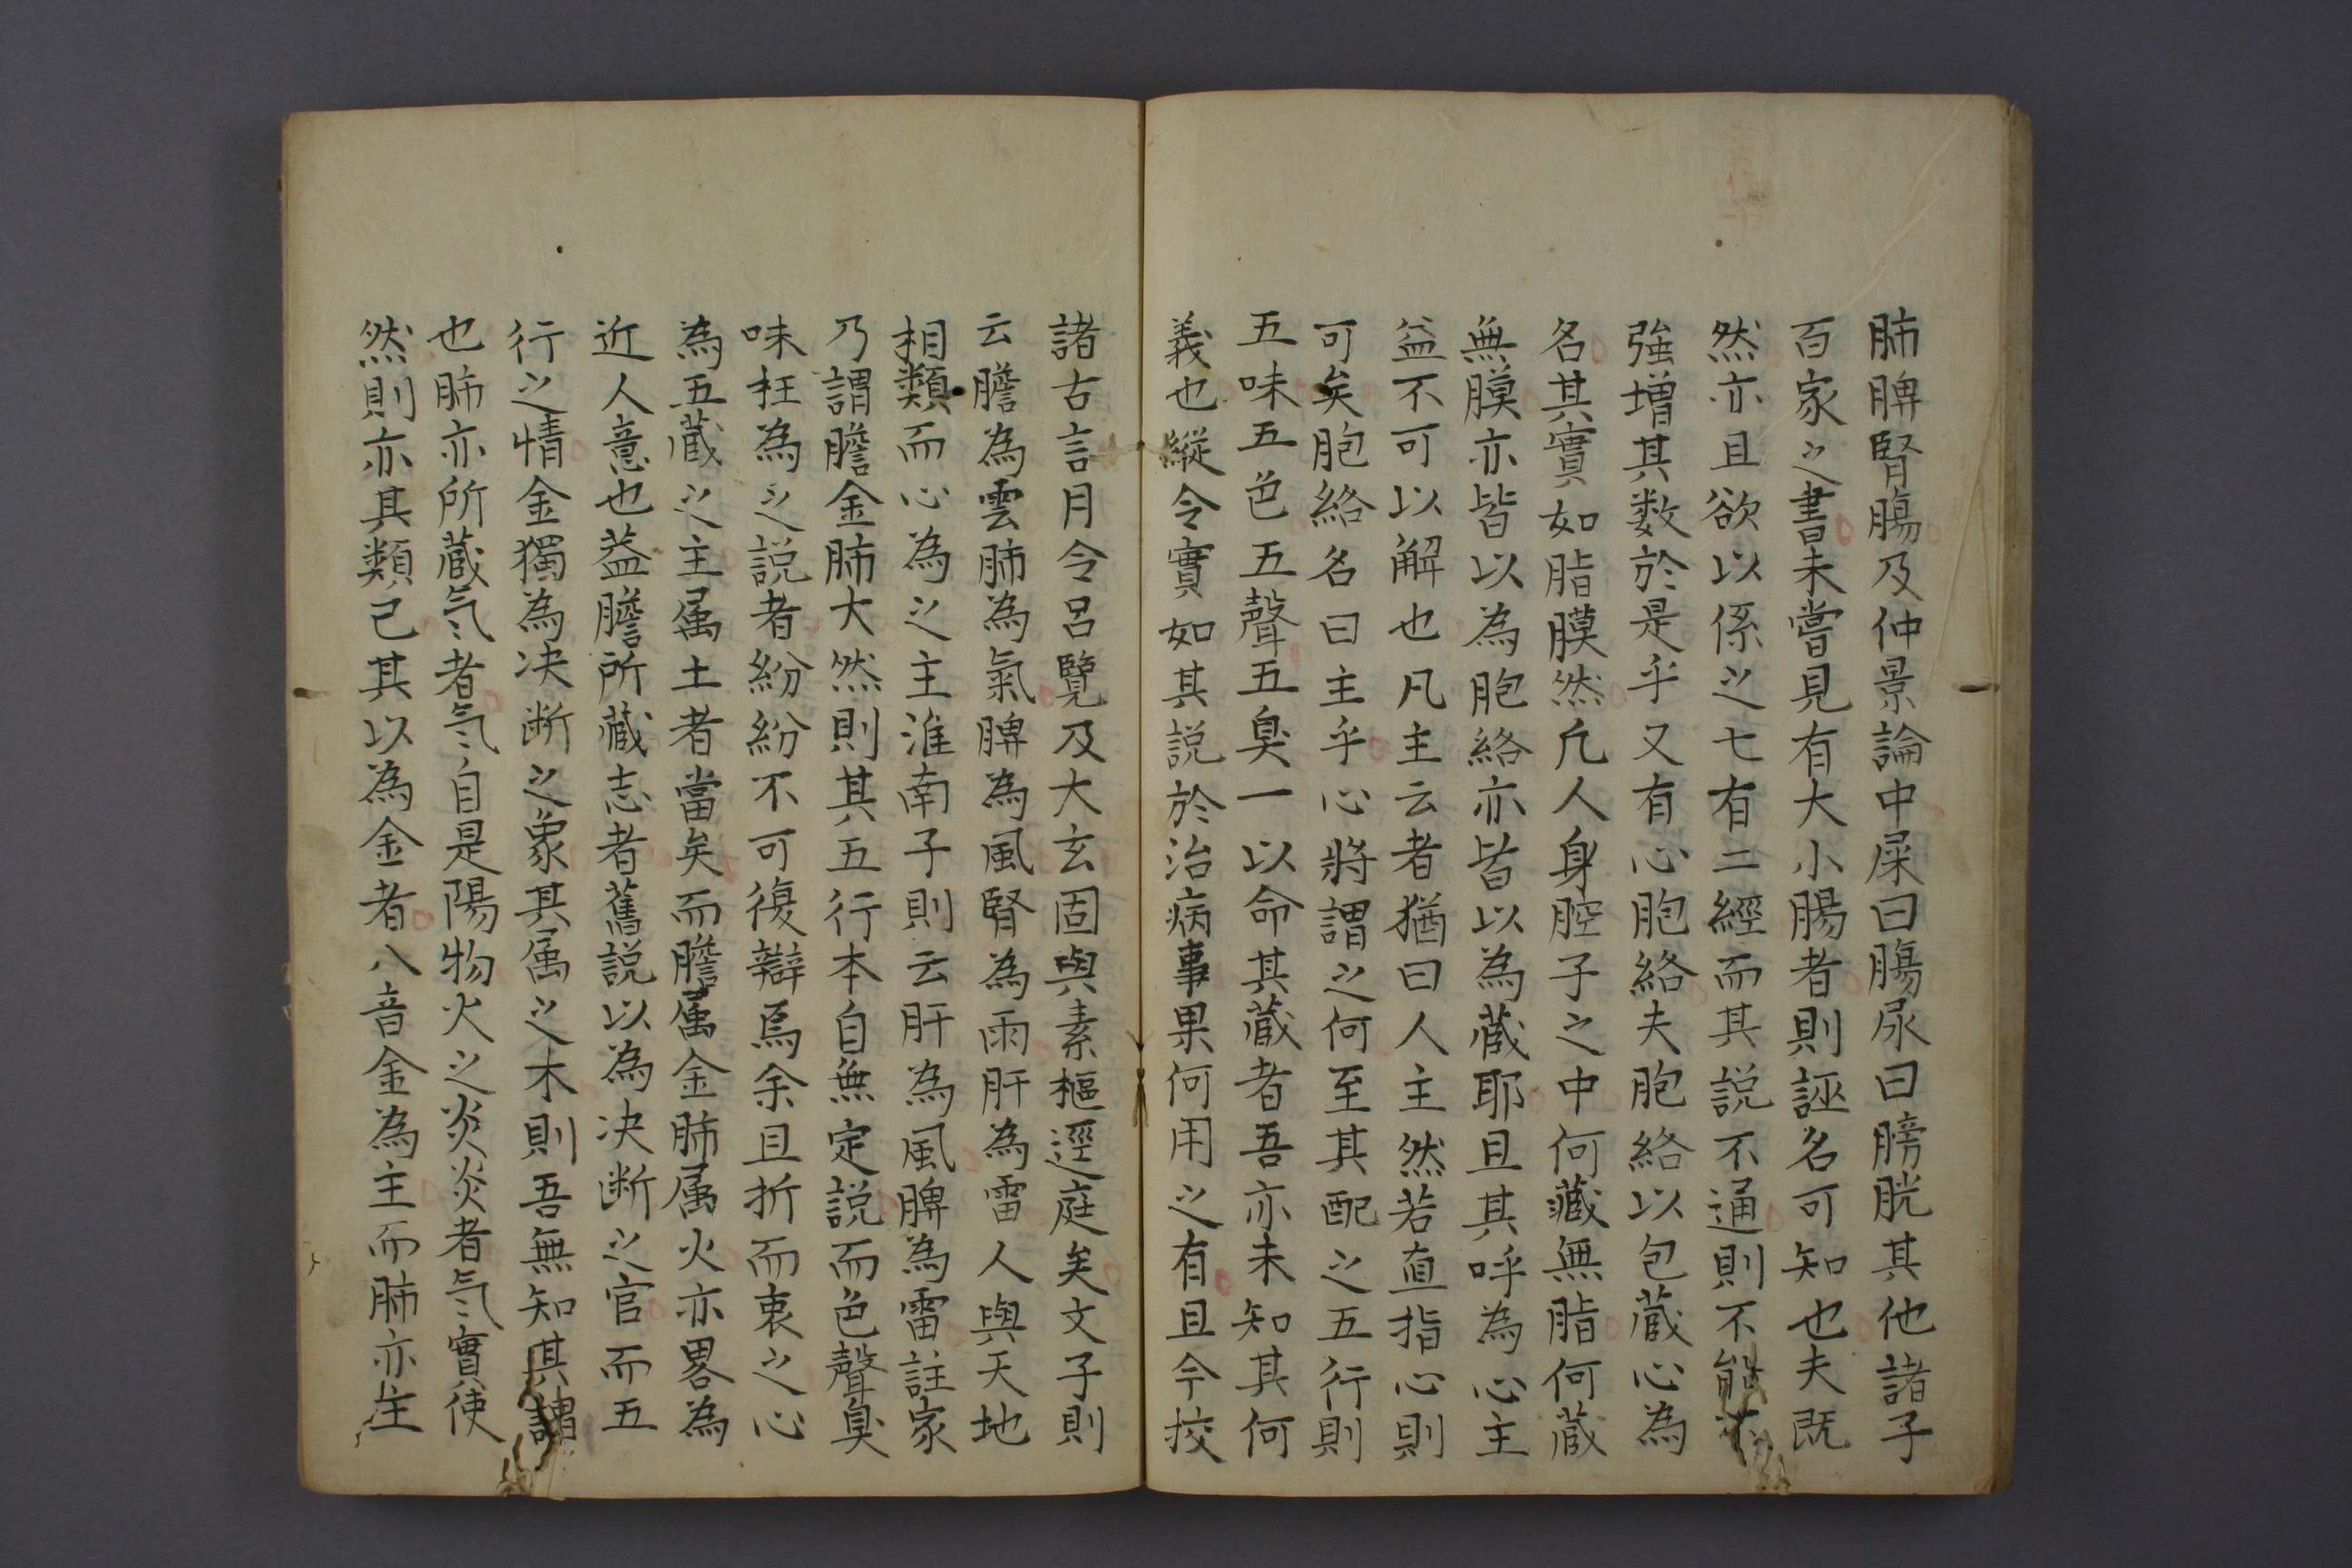 肺脾腎腸及仲景論中屎曰腸尿曰膀胱其他諸子
百家之書未嘗見有大小腸者則誣名可知也夫既
然亦且欲以係之七有二經而其説不通則不能
強増其数於是乎又有心胞絡夫胞絡以包蔵心為
名其實如脂膜然凢人身腔子之中何藏無脂何蔵
無膜亦皆以為胞絡亦皆以為蔵耶且其呼為心主
益不可以解也凡主云者猶曰人主然若直指心則
可矣胞絡名曰主乎心將謂之何至其配之五行則
五味五色五聲五臭一以命其蔵者吾亦未知其何
義也縦令實如其説於治病事果何用之有且今挍
諸古言月令呂覽及大玄固與素樞逕庭矣文子則
云膽為雲肺為氣脾為風腎為雨肝為雷人與天地
相類而心為之主淮南子則云肝為風脾為雷註家
乃謂膽金肺大然則其五行本自無定説而色聲臭
味枉為之説者紛紛不可復辯焉余且折而衷之心
為五蔵之主属土者當矣而膽属金肺属火亦畧為
近人意也葢膽所蔵志者舊説以為决断之官而五
行之情金獨為决断之象其属之木則吾無知其謂
也肺亦所蔵気者気自是陽物火之炎炎者気實使
然則亦其類己其以為金者八音金為主而肺亦主